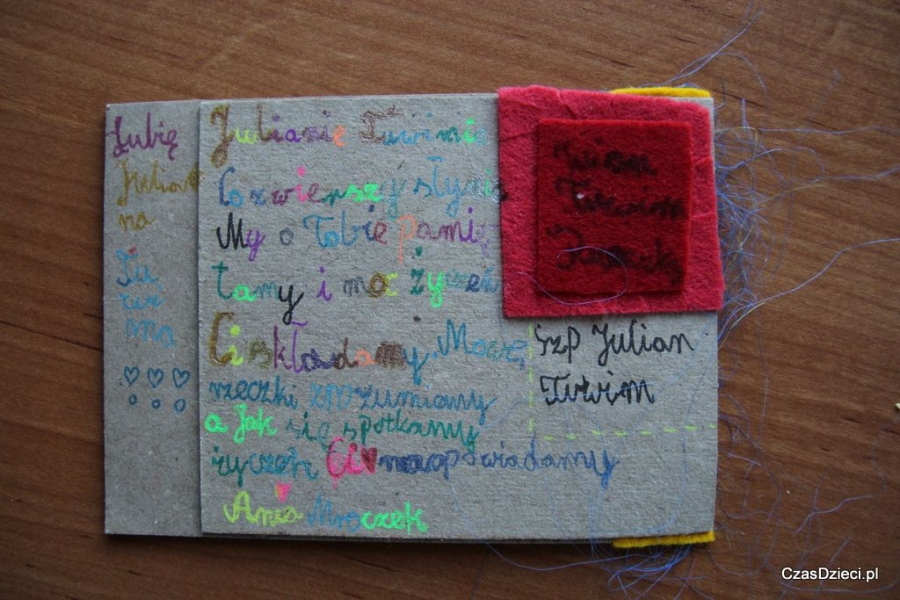 Lubię
Julia
na
Tu
wi
ma
Julianie Tuwimie
Co z wierszy słyniesz
My o Tobie pamię
tamy i moc życzeń
Ci składamy. Mowę
rzeczki zrozumiamy
a jak się spotkamy
życzeń Ci naopowiadamy
Ania Mroczek
Julian
Tuwim
SzP Julian
Tuwim
CzasDzieci.pl